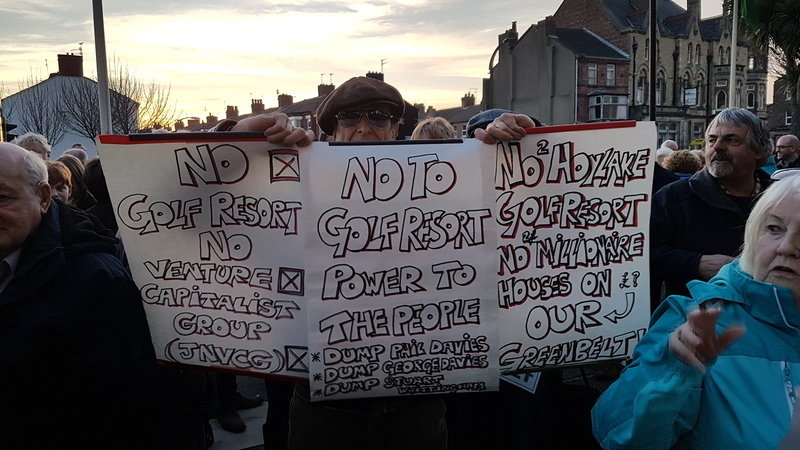 NO
GOLF RESORT
NO
VENTURE
CAPITALIST
GROUP
(JNVCG)
NO TO
GOLF RESORT
POWER TO
THE PEOPLE
* DUMP PHIL DAVIES
* DUMP GEORGE DAVIES
* DUMP STUART
NO2 HOYLAKE
GOLF RESORT
NO2 MILLIONAIRE
HOUSES ON £?
OUR
GREENBELT!